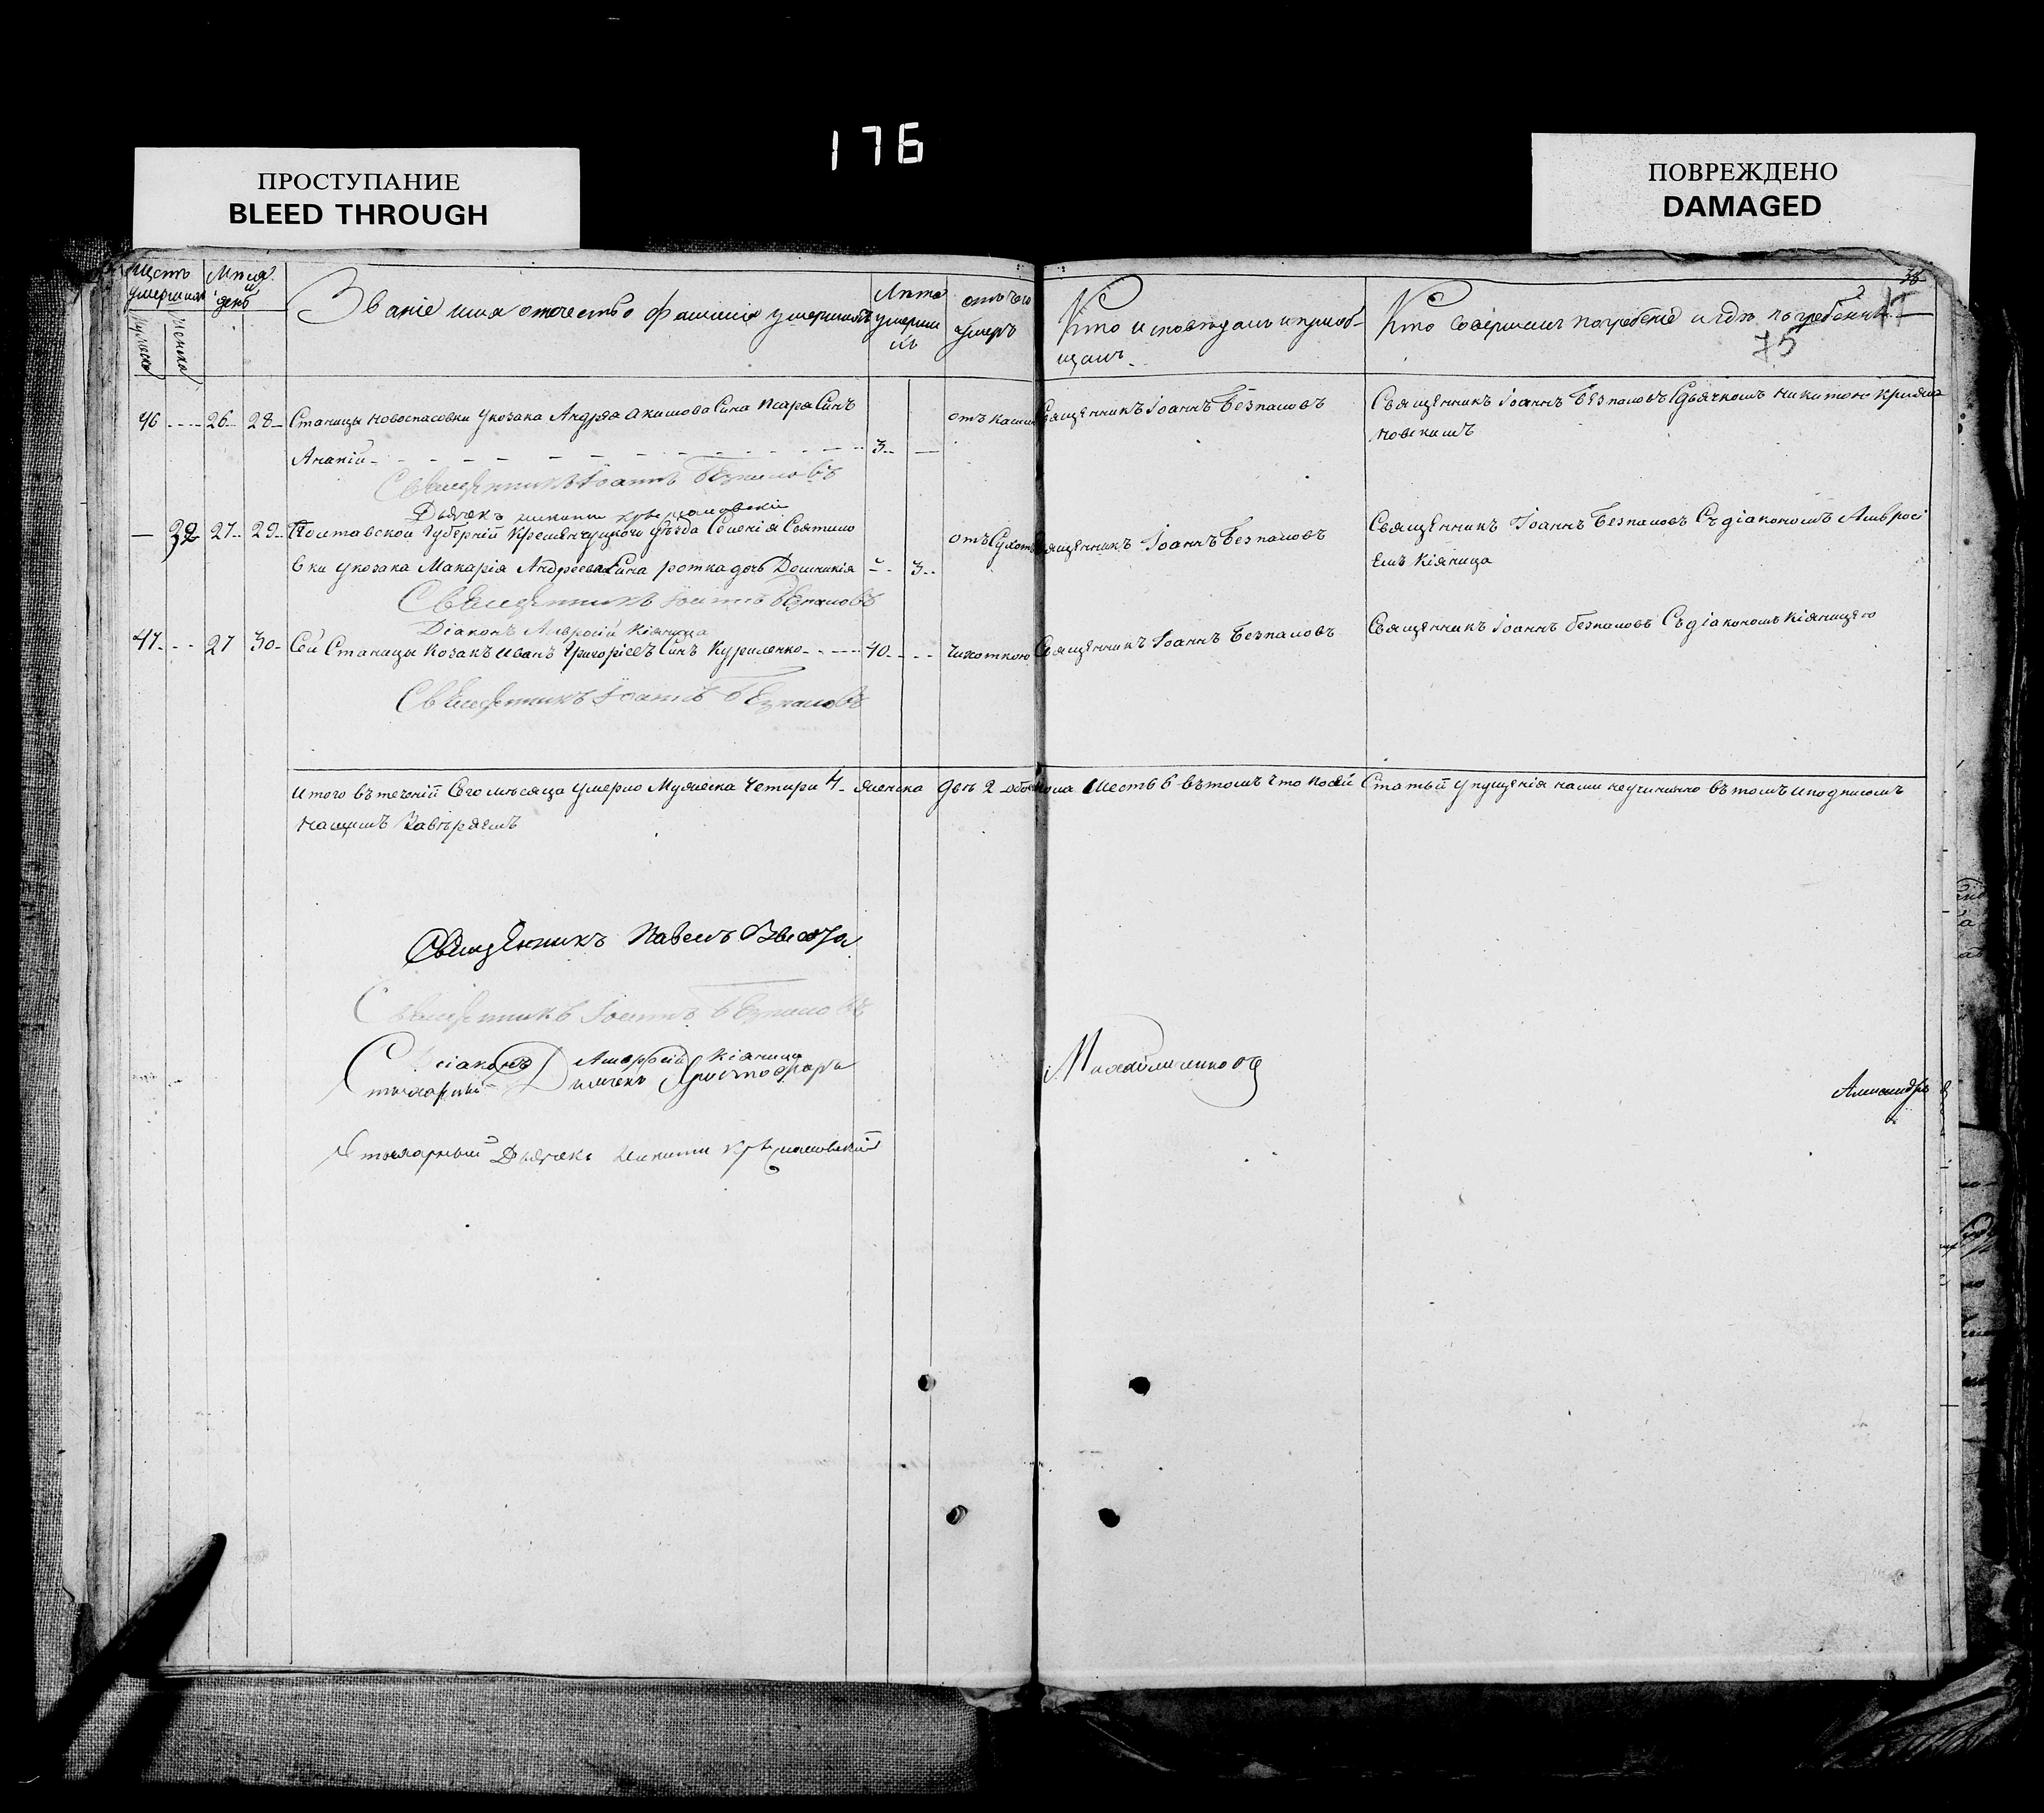 176
ПРОСТУПАНИЕ
BLEED THROUGH
ПОВРЕЖДЕНО
DAMAGED
умершихъ
день
Званіе имя отечество фамилія умершихъ
Лѣта
умерши
хъ
отъ чего
умеръ
Кто исповѣдалъ и приоб-
щалъ
Кто совершалъ погребеніе и гдѣ погребены
75
46 26 28 Станицы Новоспасовки у козака Андрѣя Акимова сина Псаря Синъ
Ананій 3
отъ кашля
Священникъ Іоаннъ Безпаловъ
Священникъ Іоаннъ Безпаловъ Сдьячкомъ Никитою Крижа
новскимъ
Священникъ Іоаннъ Безпаловъ
Дьячекъ
22 27 29 Полтавской Губерній Кременчуцкого уѣзда Селенія Святило
вки у козака Макарія Андреева Сина дочь Домникія 3
Священникъ Іоаннъ Безпаловъ
Священникъ Іоаннъ Безпаловъ Съ діакономъ Амвросі
емъ Кіяница
Священникъ Іоаннъ Безпаловъ
Діаконъ Амвросій Кіяница
47 27 30 Сей Станицы Козакъ Иванъ Григоріевъ Синъ Куриленко 40
чихоткою
Священникъ Іоаннъ Безпаловъ
Священникъ Іоаннъ Безпаловъ Съ діакономъ Кіяницею
Священникъ Іоаннъ Безпаловъ
Итого въ теченій Сего мѣсяца умерло Мужеска Четири 4 женска двѣ 2 обоего пола Шесть 6 въ томъ что по сей Статьи упущенія нами неучинено въ томъ и подписомъ
нашимъ Завѣряемъ
Священникъ Павелъ
Священникъ Іоаннъ Безпаловъ
Діаконъ Амвросій Кіяница
Стихарный Дьячекъ
Стихарный Дьячекъ Никита
Александръ